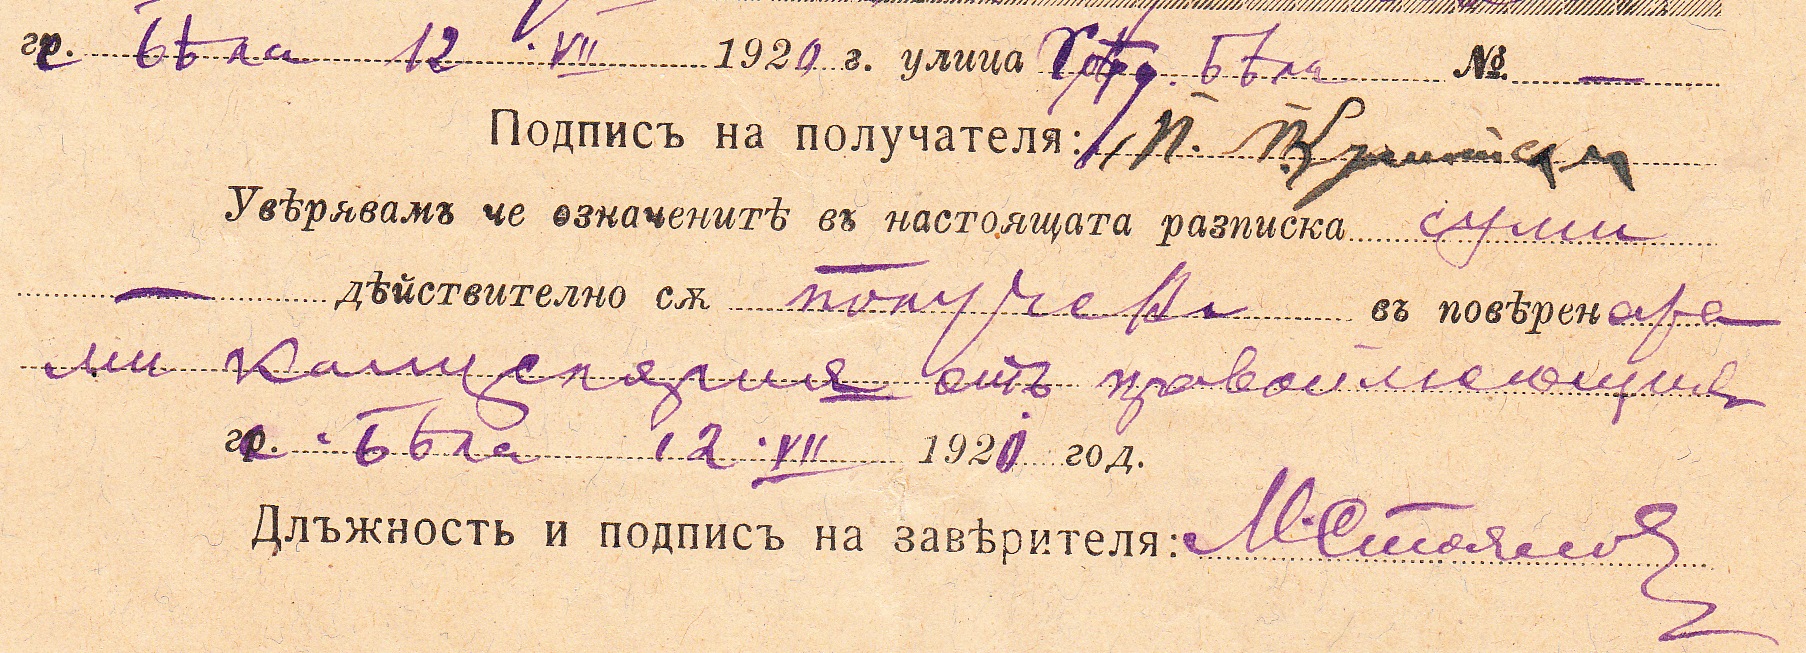 гр. Бѣла 12 VII 1920 г. улица Бѣла № —
Подписъ на получателя: П.
Увѣрявамъ че означенитѣ въ настоящата разписка суми
— дѣйствително сѫ получени въ поверен
ми канцелярия отъ правоимеющия
гр. Бѣла 12 VII 1920 год.
Длъжность и подписъ на заверителя: М. Стоянов